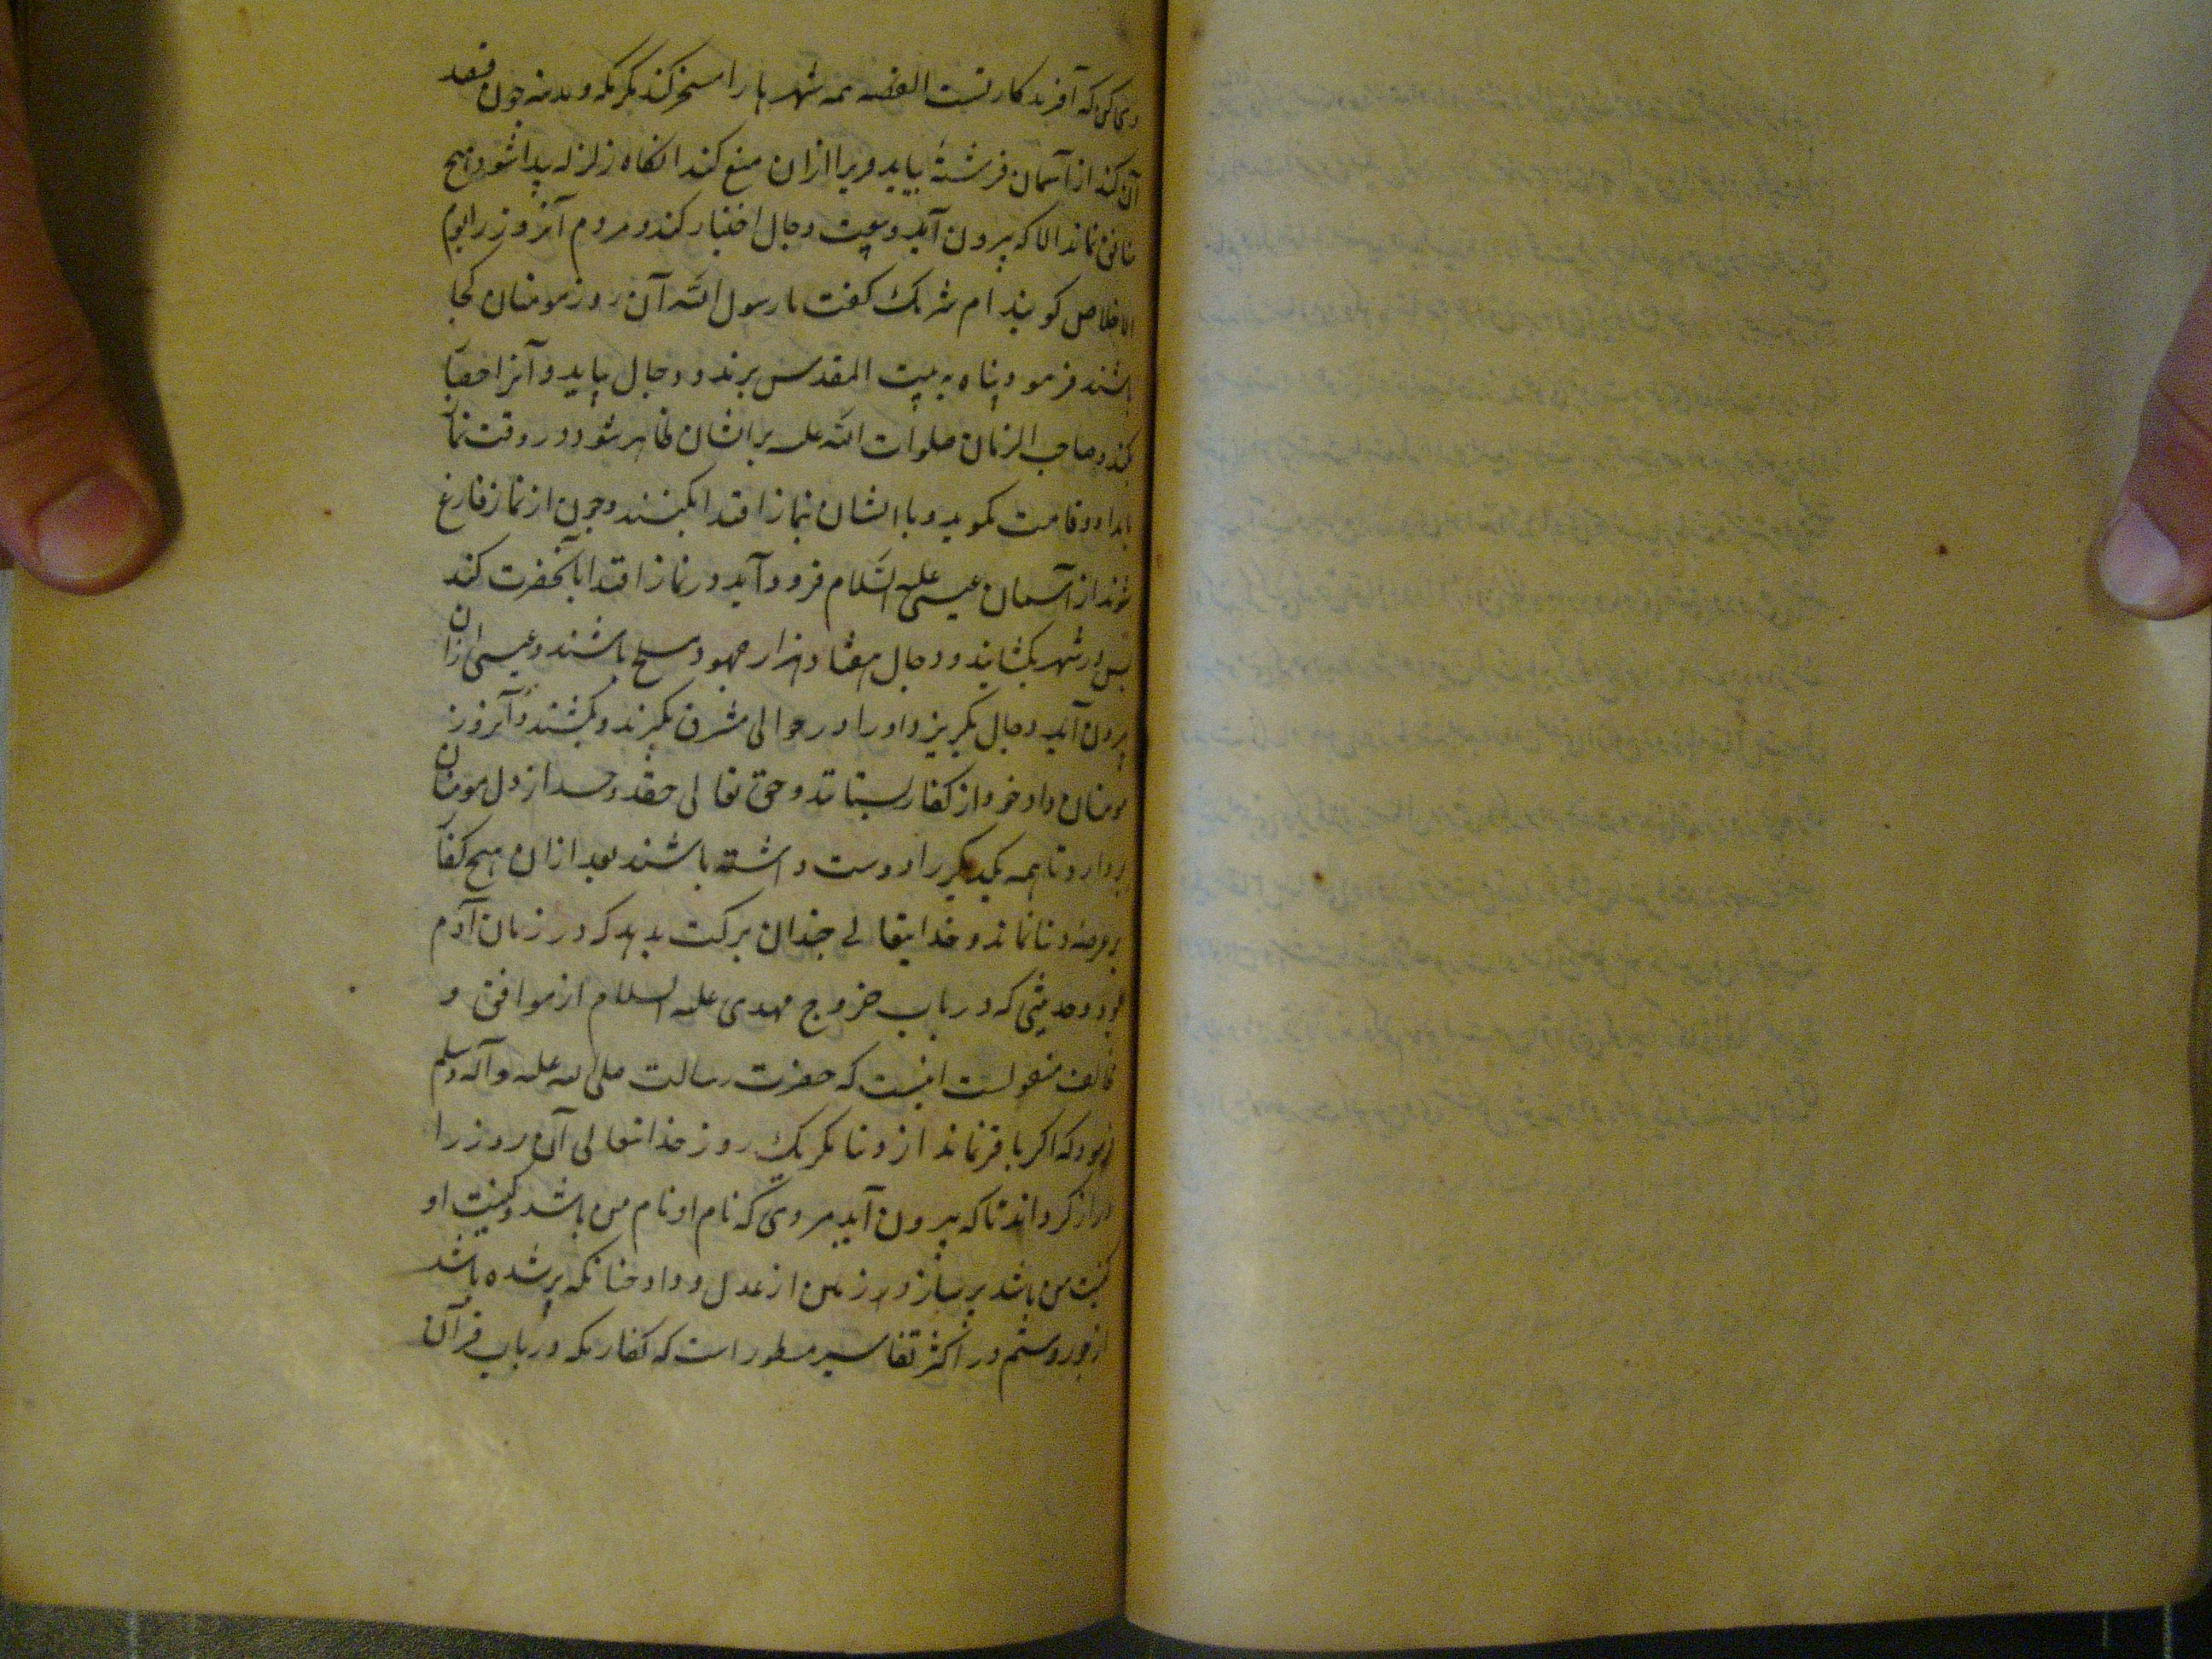 که آفریدکار تست القصه همه شهرها را مسخر کند مکر مکه و مدینه چون قصد
آن کند از آسمان فرشتهٔ بیاید و ویرا ازان منع کند انکاه زلزله پیدا شود و هیچ
منافق نماند الا که بیرون آید و بیعت دجال اختیار کند و مردم آنروز را یوم
الاخلاص کویند ام شریک کفت یا رسول الله آن روز مومنان کجا
باشند فرمود پناه به بیت المقدس برند و دجال بیاید و آنرا حصا
کند و صاحب الزمان صلوات الله علیه بر ایشان ظاهر شود در وقت نما
بامداد و قامت بکوید و با ایشان نماز اقتدا بکنند و چون از نماز فارغ
شوند از آسمان عیسی علیه السلام فرود آید و نماز اقتدا بآنحضرت کند
پس در شهر بکشایند و دجال هفتاد هزار جهود مسلح باشند و عیسی ازان
بیرون آید دجال بکریزد او را در حوالی مشرق بکیرند و بکشند و آنروز
مومنان داد خود از کفار بستانند و حق تعالی حقد و حسد از دل مومنان
بردارد تا همه یکدیکر را دوست داشته باشند بعد ازان هیچ کفا
بر عرصه دنیا نماند و خدایتعالی چندان برکت بدهد که در زمان آدم
بود و حدیثی که در باب خروج مهدی علیه السلام از موافق و
مخالف منقولست اینست که حضرت رسالت صلی الله علیه و آله وسلم
فرمود که اکر باقی نماند از دنیا مکر یک روز خدایتعالی آن روز را
دراز کرداند تا که بیرون آید مردی که نام او نام من باشد و کنیت او
کنیت من باشد پر سازد زمین از عدل و داد چنانکه پر شده باشد
از جور و ستم در اکثر تفاسیر مسطور است که کفار مکه در باب قرآن